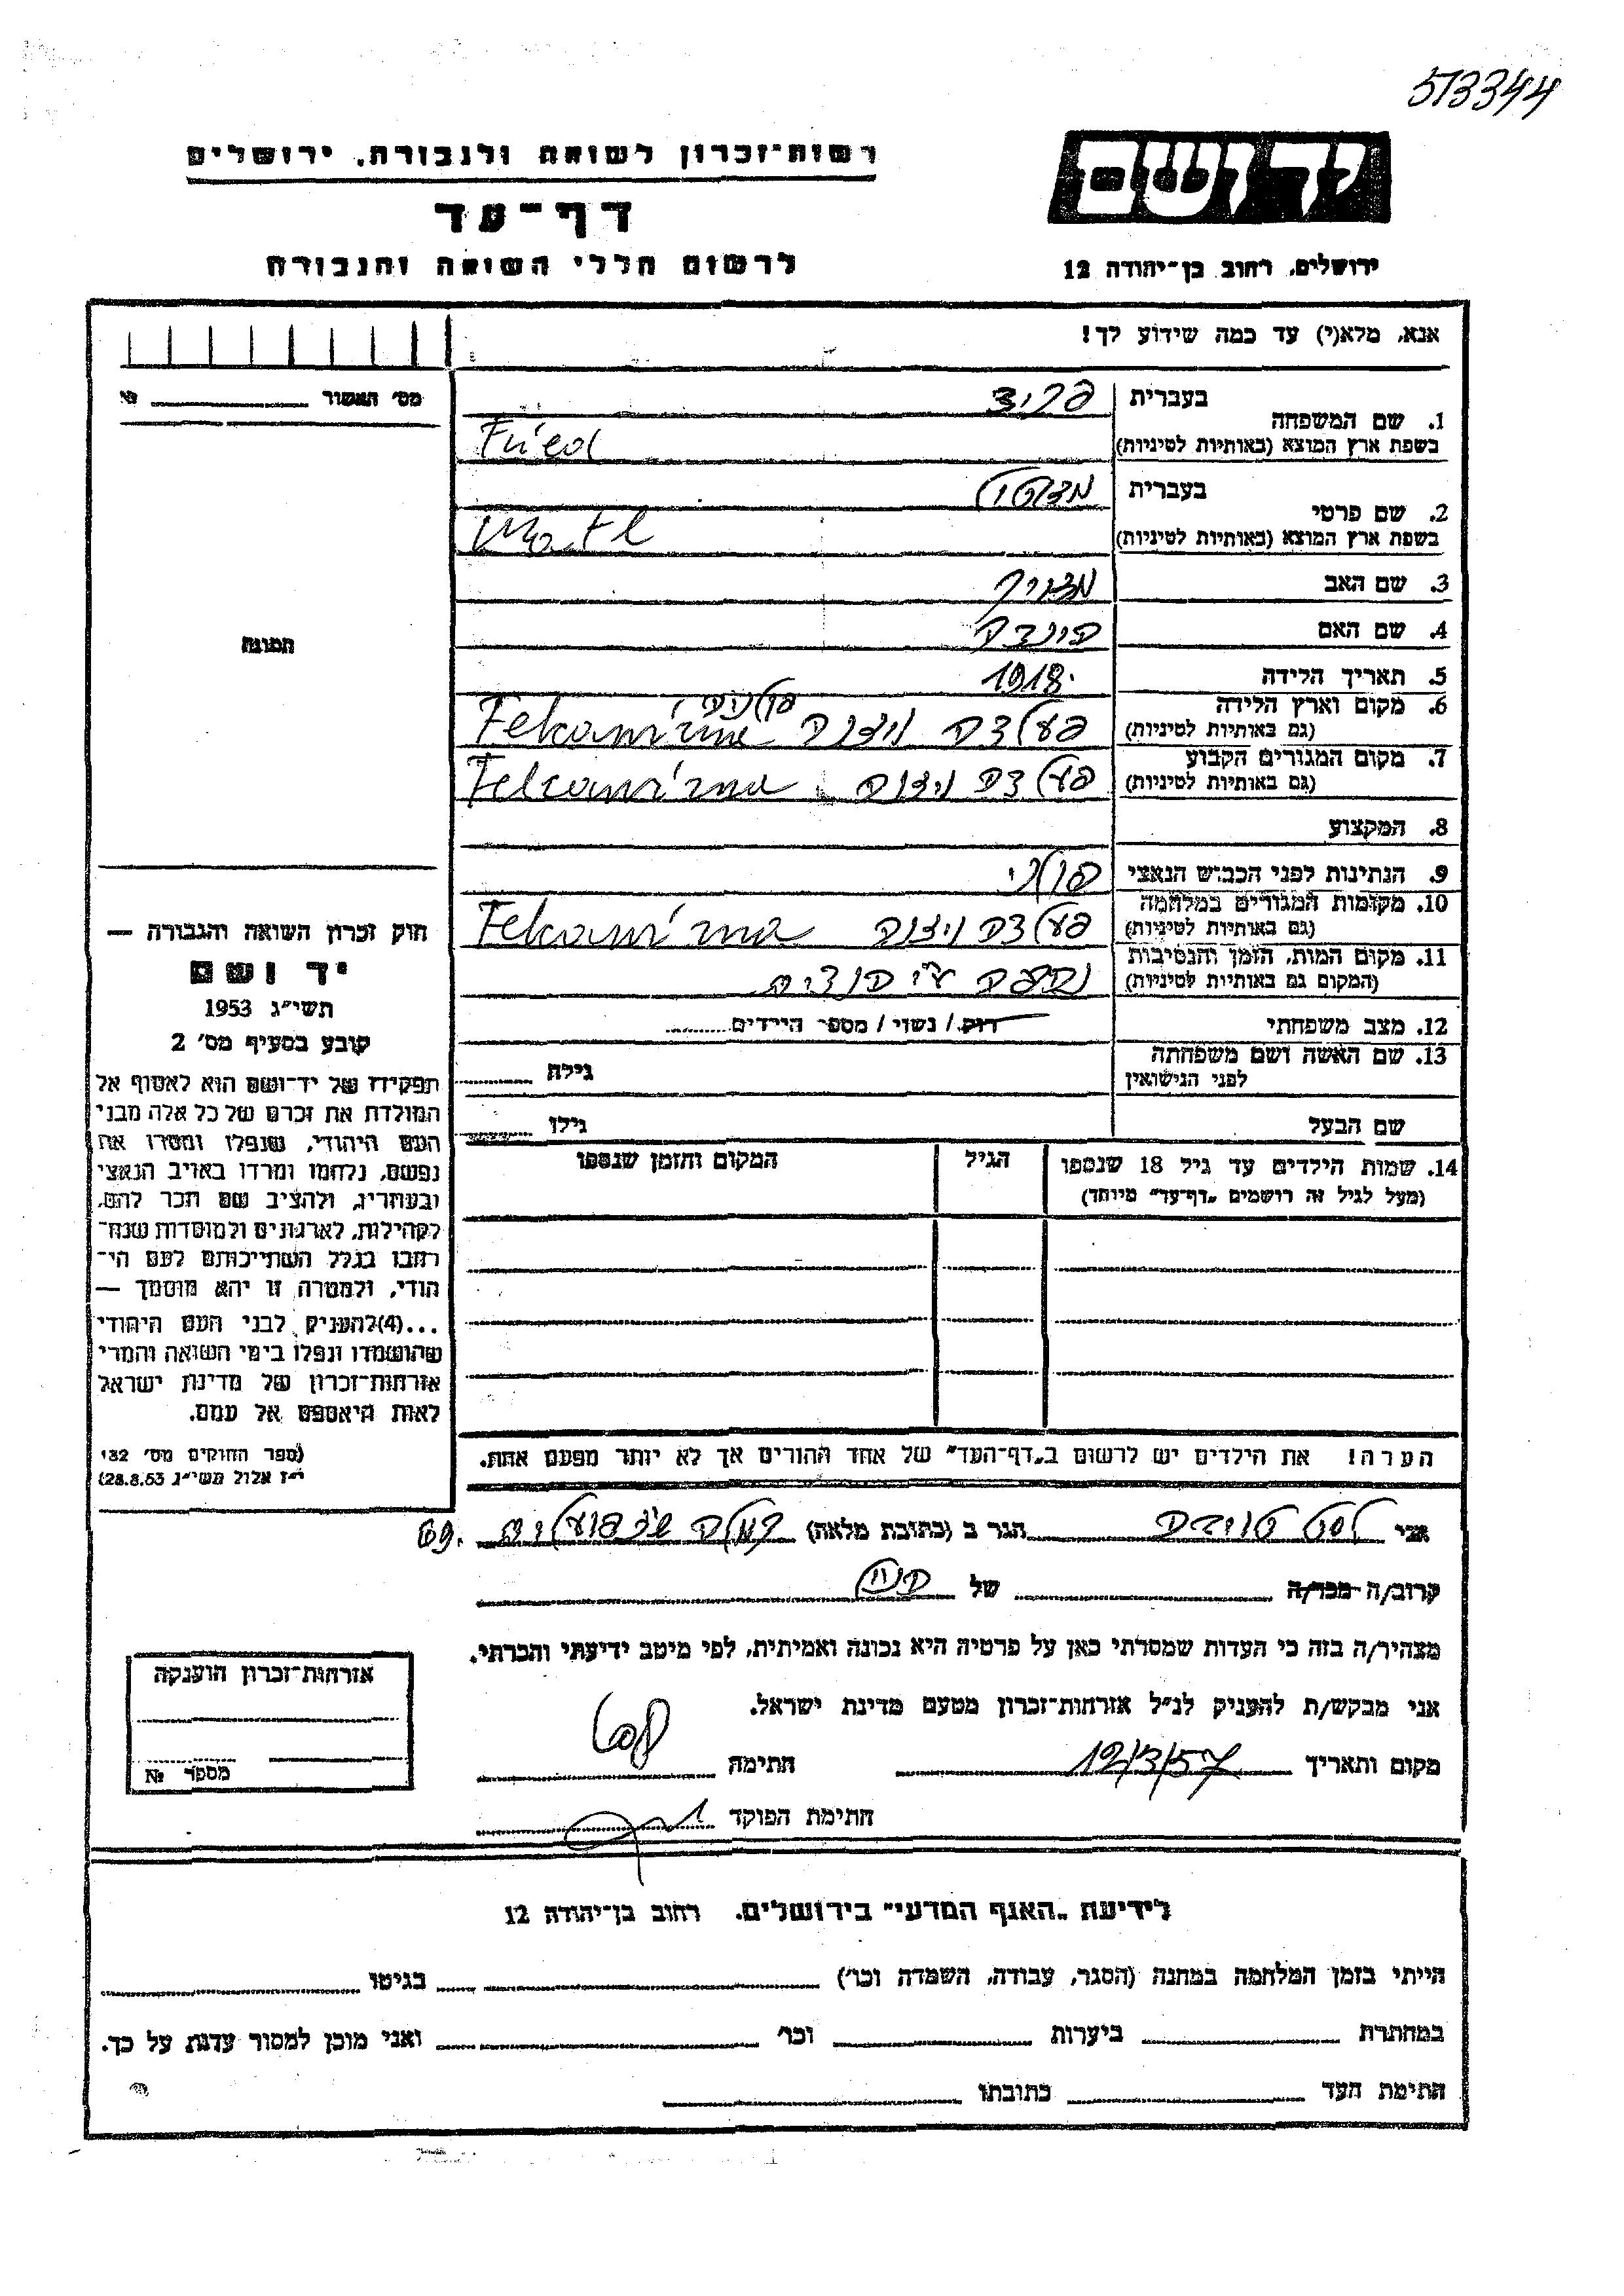 573344
רשות-זכרון לשואה ולגבורה, ירושלים
יד ושם
דף-עד
לרשום חללי השואה והגבורה
ירושלים, רחוב בן-יהודה 12
אנא, מלא(י) עד כמה שידוע לך!
מס' האשור № 
תמונה
1. שם המשפחה
בעברית פריד
בשפת ארץ המוצא (באותיות לטיניות) Fried
2. שם פרטי
בעברית
בשפת ארץ המוצא (באותיות לטיניות) Matl
3. שם האב
4. שם האם
5. תאריך הלידה 1918
6. מקום וארץ הלידה
(גם באותיות לטיניות)
7. מקום המגורים הקבוע
(גם באותיות לטיניות)
8. המקצוע
9. הנתינות לפני הכבוש הנאצי
10. מקומות המגורים במלחמה
(גם באותיות לטיניות)
11. מקום המות, הזמן והנסיבות
(המקום גם באותיות לטיניות)
12. מצב משפחתי רוק / נשוי / מספר הילדים
13. שם האשה ושם משפחתה
לפני הנישואין גילה
שם הבעל גילו
14. שמות הילדים עד גיל 18 שנספו
(מעל לגיל זה רושמים "דף-עד" מיוחד)
הגיל
המקום והזמן שנספו
חוק זכרון השואה והגבורה —
יד ושם
תשי"ג 1953
קובע בסעיף מס' 2
תפקידו של יד-ושם הוא לאסוף אל
המולדת את זכרם של כל אלה מבני
העם היהודי, שנפלו ומסרו את
נפשם, נלחמו ומרדו באויב הנאצי
ובעוזריו, ולהציב שם וזכר להם,
לקהילות, לארגונים ולמוסדות שנח-
רבו בגלל השתייכותם לעם הי-
הודי, ולמטרה זו יהא מוסמך —
...(4) להעניק לבני העם היהודי
שהושמדו ונפלו בימי השואה והמרי
אזרחות-זכרון של מדינת ישראל
לאות היאספם אל עמם.
(ספר החוקים מס' 132
י"ז אלול תשי"ג 28.8.53)
הערה! את הילדים יש לרשום ב"דף-העד" של אחד ההורים אך לא יותר מפעם אחת.
אני הגר ב (כתובת מלאה) 69
קרוב/ה מכר/ה של
מצהיר/ה בזה כי העדות שמסרתי כאן על פרטיה היא נכונה ואמיתית, לפי מיטב ידיעתי והכרתי.
אני מבקש/ת להעניק לנ"ל אזרחות-זכרון מטעם מדינת ישראל.
מקום ותאריך 12/3/57 חתימה
חתימת הפוקד
אזרחות-זכרון הוענקה
מספר №
לידיעת "האגף המדעי" בירושלים, רחוב בן-יהודה 12
הייתי בזמן המלחמה במחנה (הסגר, עבודה, השמדה וכו') בגיטו
במחתרת ביערות וכו' ואני מוכן למסור עדות על כך.
חתימת העד כתובתו